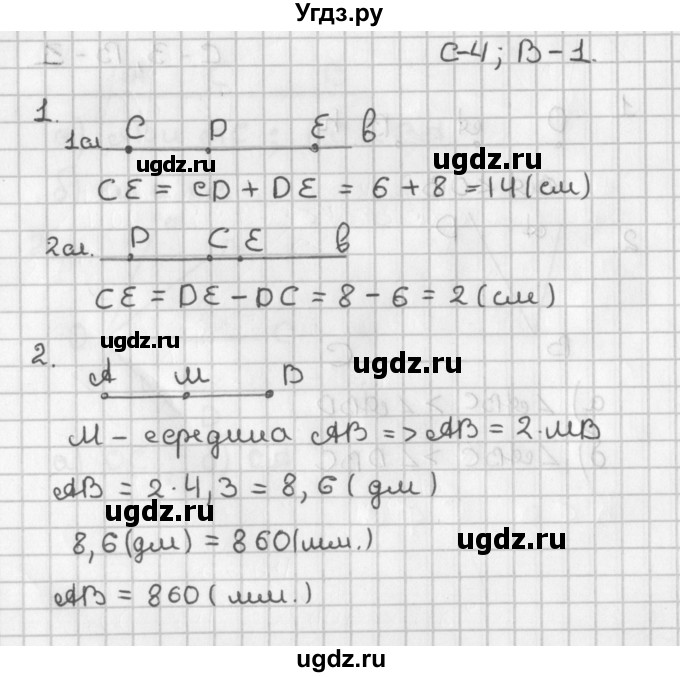 Угдз.ру
С-4; В-1.
1.
1сл C D E в
ugdz.ru ugdz.ru
CE = CD + DE = 6 + 8 = 14 (см)
2сл. D C E в
CE = DE - DC = 8 - 6 = 2 (см)
ugdz.ru
2. ugdz.ru
A M B
M - середина AB => AB = 2·MB
AB = 2·4,3 = 8,6 (дм)
ugdz.ru
8,6 (дм) = 860 (мм.)
ugdz.ru
AB = 860 (мм.)
ugdz.ru